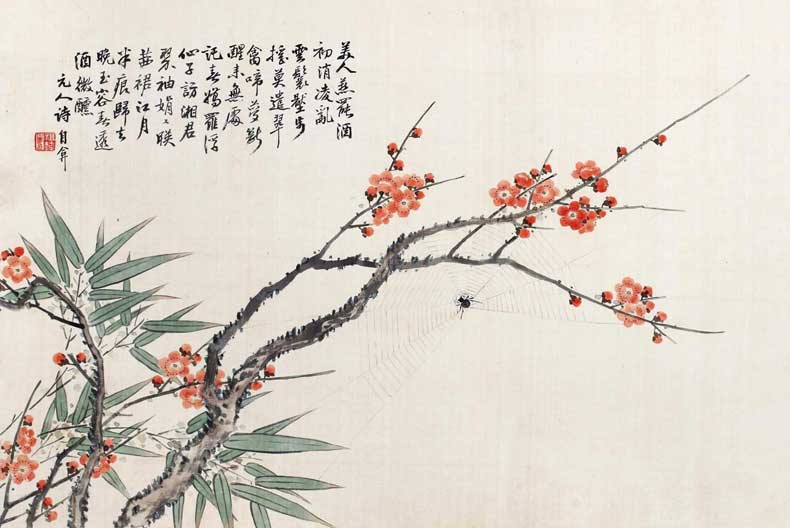 美人燕罷酒
初消凌亂
雲鬟步
摇莫遣翠
禽啼夢斷
醒来無處
記春嬌羅浮
仙子訪湘君
翠袖娟〻映
茜裙江月
半痕歸去
晚玉容春透
酒微醺
元人诗 自弇